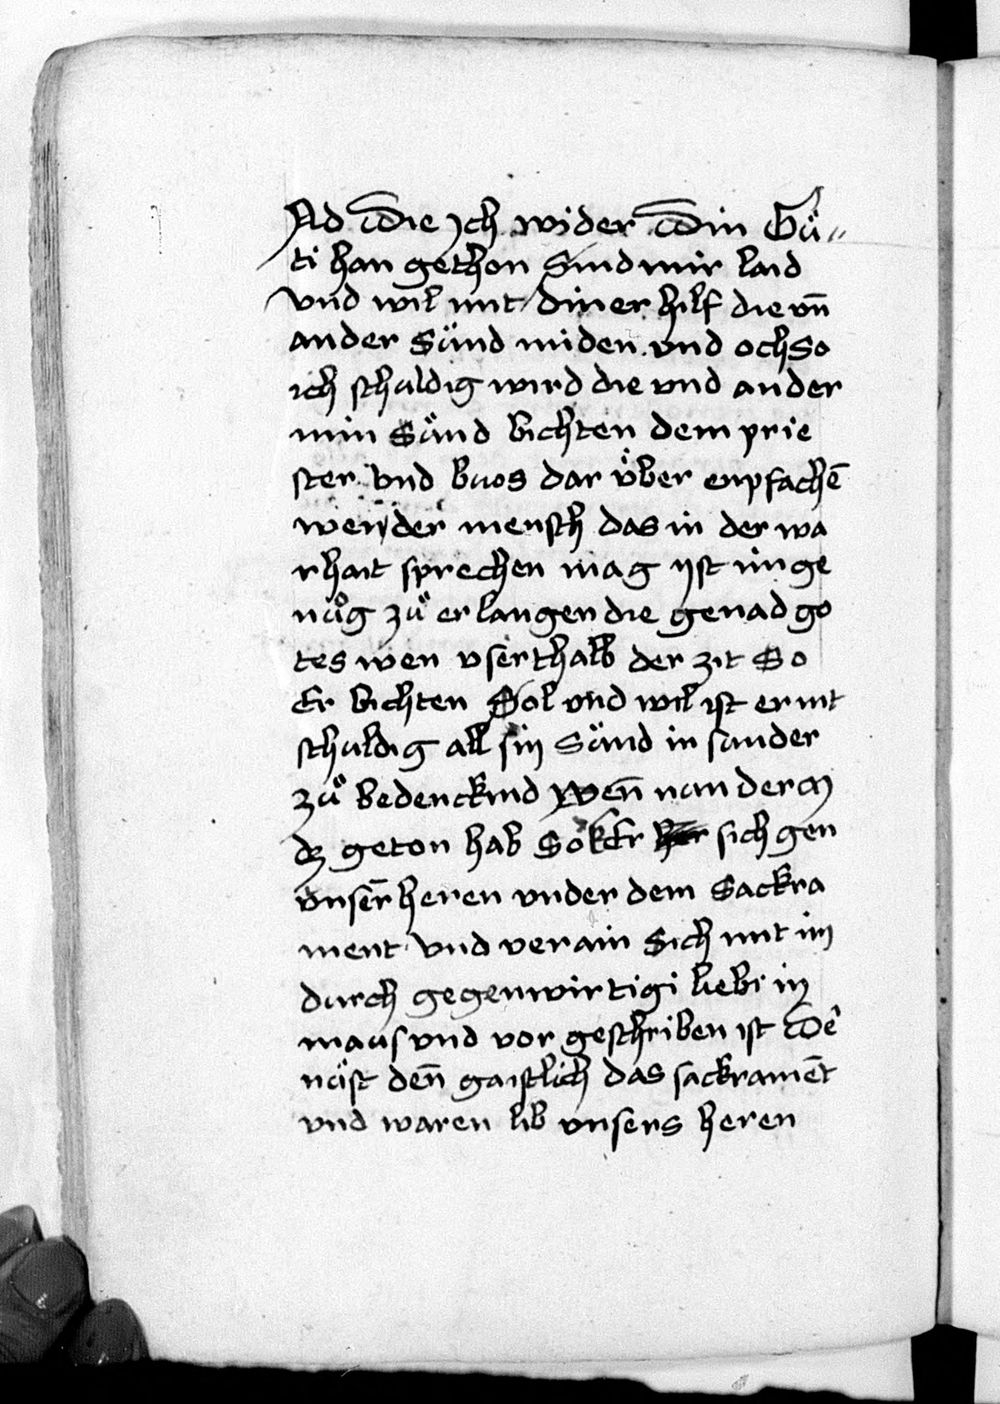 Nd die Jch wider din Gü-
ti han gethon Sind mir laid
vnd wil mit diner hilf die vn̄
ander Sünd miden vnd och So
ich schuldig wird die vnd ander
min Sünd bichten dem prie
ster vnd buos dar über enpfachē
wen der mensch das in der wa
rhait sprechen mag ist im ge
nůg zů erlangen die genad go
tes wen vserthalb der zit So
Er bichten Sol vnd wil ist er nit
schuldig all sin Sünd in sunder
zů bedenckind wen̄ nun der m
dz geton hab So ker sich gen
vnser̄ heren vnder dem Sackra
ment vnd verain Sich mit im
durch gegenwirtigi liebi in
maus vnd vor geschriben ist dē
nüst den̄ gaistlich das sackramēt
vnd waren lib vnsers heren